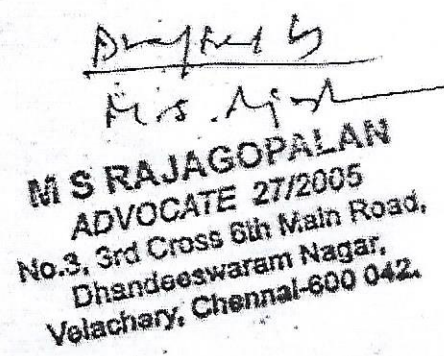 Drafted by
M.S.
M S RAJAGOPALAN
ADVOCATE 27/2005
No.3, 3rd Cross 6th Main Road,
Dhandeeswaram Nagar,
Velachary, Chennai-600 042.